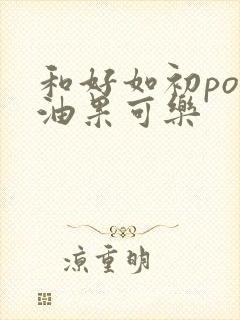 和好如初po
油果可樂
凉重明